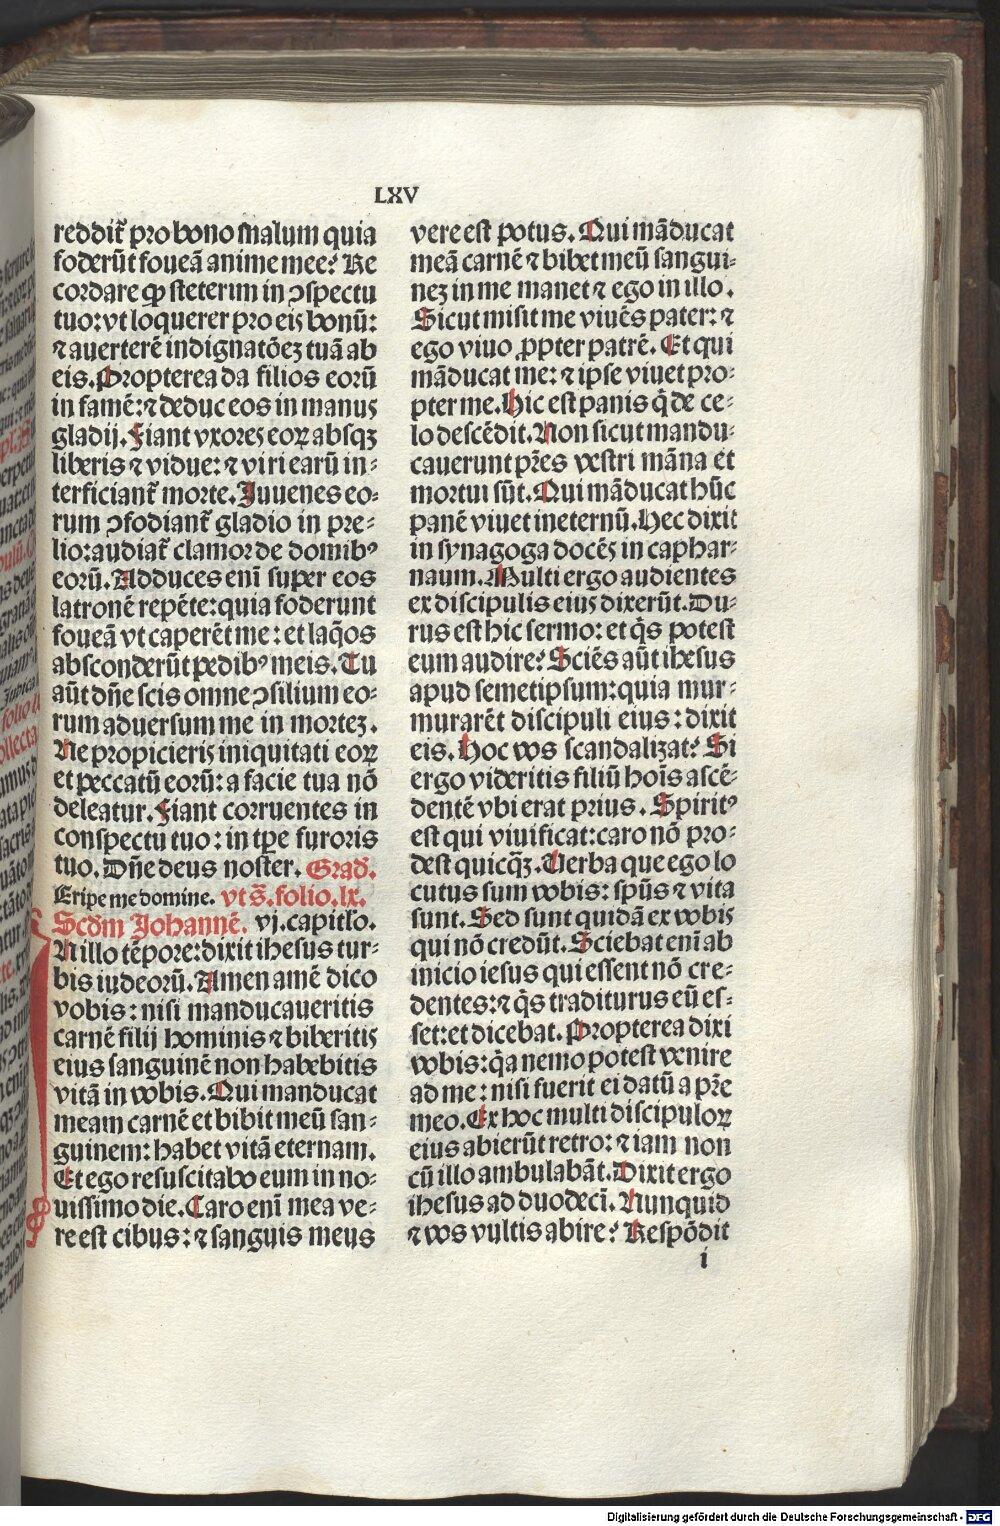 LXV
reddit᷑ pro bono malum quia
foderūt foueā anime mee? Re
cordare ꝙ steterim in ↄspectu
tuo: vt loquerer pro eis bonū:
⁊ auerterē indignatōeꝫ tuā ab
eis. Propterea da filios eorū
in famē: ⁊ deduc eos in manus
gladij. Fiant vxores eoꝝ absqꝫ
liberis ⁊ vidue: ⁊ viri earū in⸗
terficiant᷑ morte. Juuenes eo⸗
rum ↄfodiant᷑ gladio in pre⸗
lio: audiat᷑ clamor de domibꝰ
eorū. Adduces enī super eos
latronē repēte: quia foderunt
foueā vt caperēt me: et laq̄os
absconderūt pedibꝰ meis. Tu
aūt dn̄e scis omne ↄsilium eo⸗
rum aduersum me in morteꝫ.
Ne propicieris iniquitati eoꝝ
et peccatū eorū: a facie tua nō
deleatur. Fiant corruentes in
conspectu tuo: in tꝑe furoris
tuo. Dn̄e deus noster. Grad̄.
Eripe me domine. vt s̄. folio. lx.
Scd̄m Johannē. vj. capitl̓o.
IN illo tēpore: dixit ihesus tur⸗
bis iudeorū. Amen amē dico
vobis: nisi manducaueritis
carnē filij hominis ⁊ biberitis
eius sanguinē non habebitis
vitā in vobis. Qui manducat
meam carnē et bibit meū san⸗
guinem: habet vitā eternam.
Et ego resuscitabo eum in no⸗
uissimo die. Caro enī mea ve⸗
re est cibus: ⁊ sanguis meus
vere est potus. Qui māducat
meā carnē ⁊ bibet meū sangui⸗
neꝫ in me manet ⁊ ego in illo.
Sicut misit me viuēs pater: ⁊
ego viuo ꝓpter patrē. Et qui
māducat me: ⁊ ipse viuet pro⸗
pter me. Hic est panis q̄ de ce⸗
lo descēdit. Non sicut mandu⸗
cauerunt pr̄es vestri māna et
mortui sūt. Qui māducat hūc
panē viuet in eternū. Hec dixit
in synagoga docēs in caphar⸗
naum. Multi ergo audientes
ex discipulis eius dixerūt. Du⸗
rus est hic sermo: et q̄s potest
eum audire? Sciēs aūt ihesus
apud semetipsum: quia mur⸗
murarēt discipuli eius: dixit
eis. Hoc vos scandalizat? Si
ergo videritis filiū hoīs ascē⸗
dentē vbi erat prius. Spiritꝰ
est qui viuificat: caro nō pro⸗
dest quicq̄ꝫ. Uerba que ego lo
cutus sum vobis: spūs ⁊ vita
sunt. Sed sunt quidā ex vobis
qui nō credūt. Sciebat enī ab
inicio iesus qui essent nō cre⸗
dentes: ⁊ q̄s traditurus eū es⸗
set: et dicebat. Propterea dixi
vobis: q̄a nemo potest venire
ad me: nisi fuerit ei datū a pr̄e
meo. Ex hoc multi discipuloꝝ
eius abierūt retro: ⁊ iam non
cū illo ambulabāt. Dixit ergo
ihesus ad duodecī. Nunquid
⁊ vos vultis abire? Respōdit
i
Digitalisierung gefördert durch die Deutsche Forschungsgemeinschaft - DFG